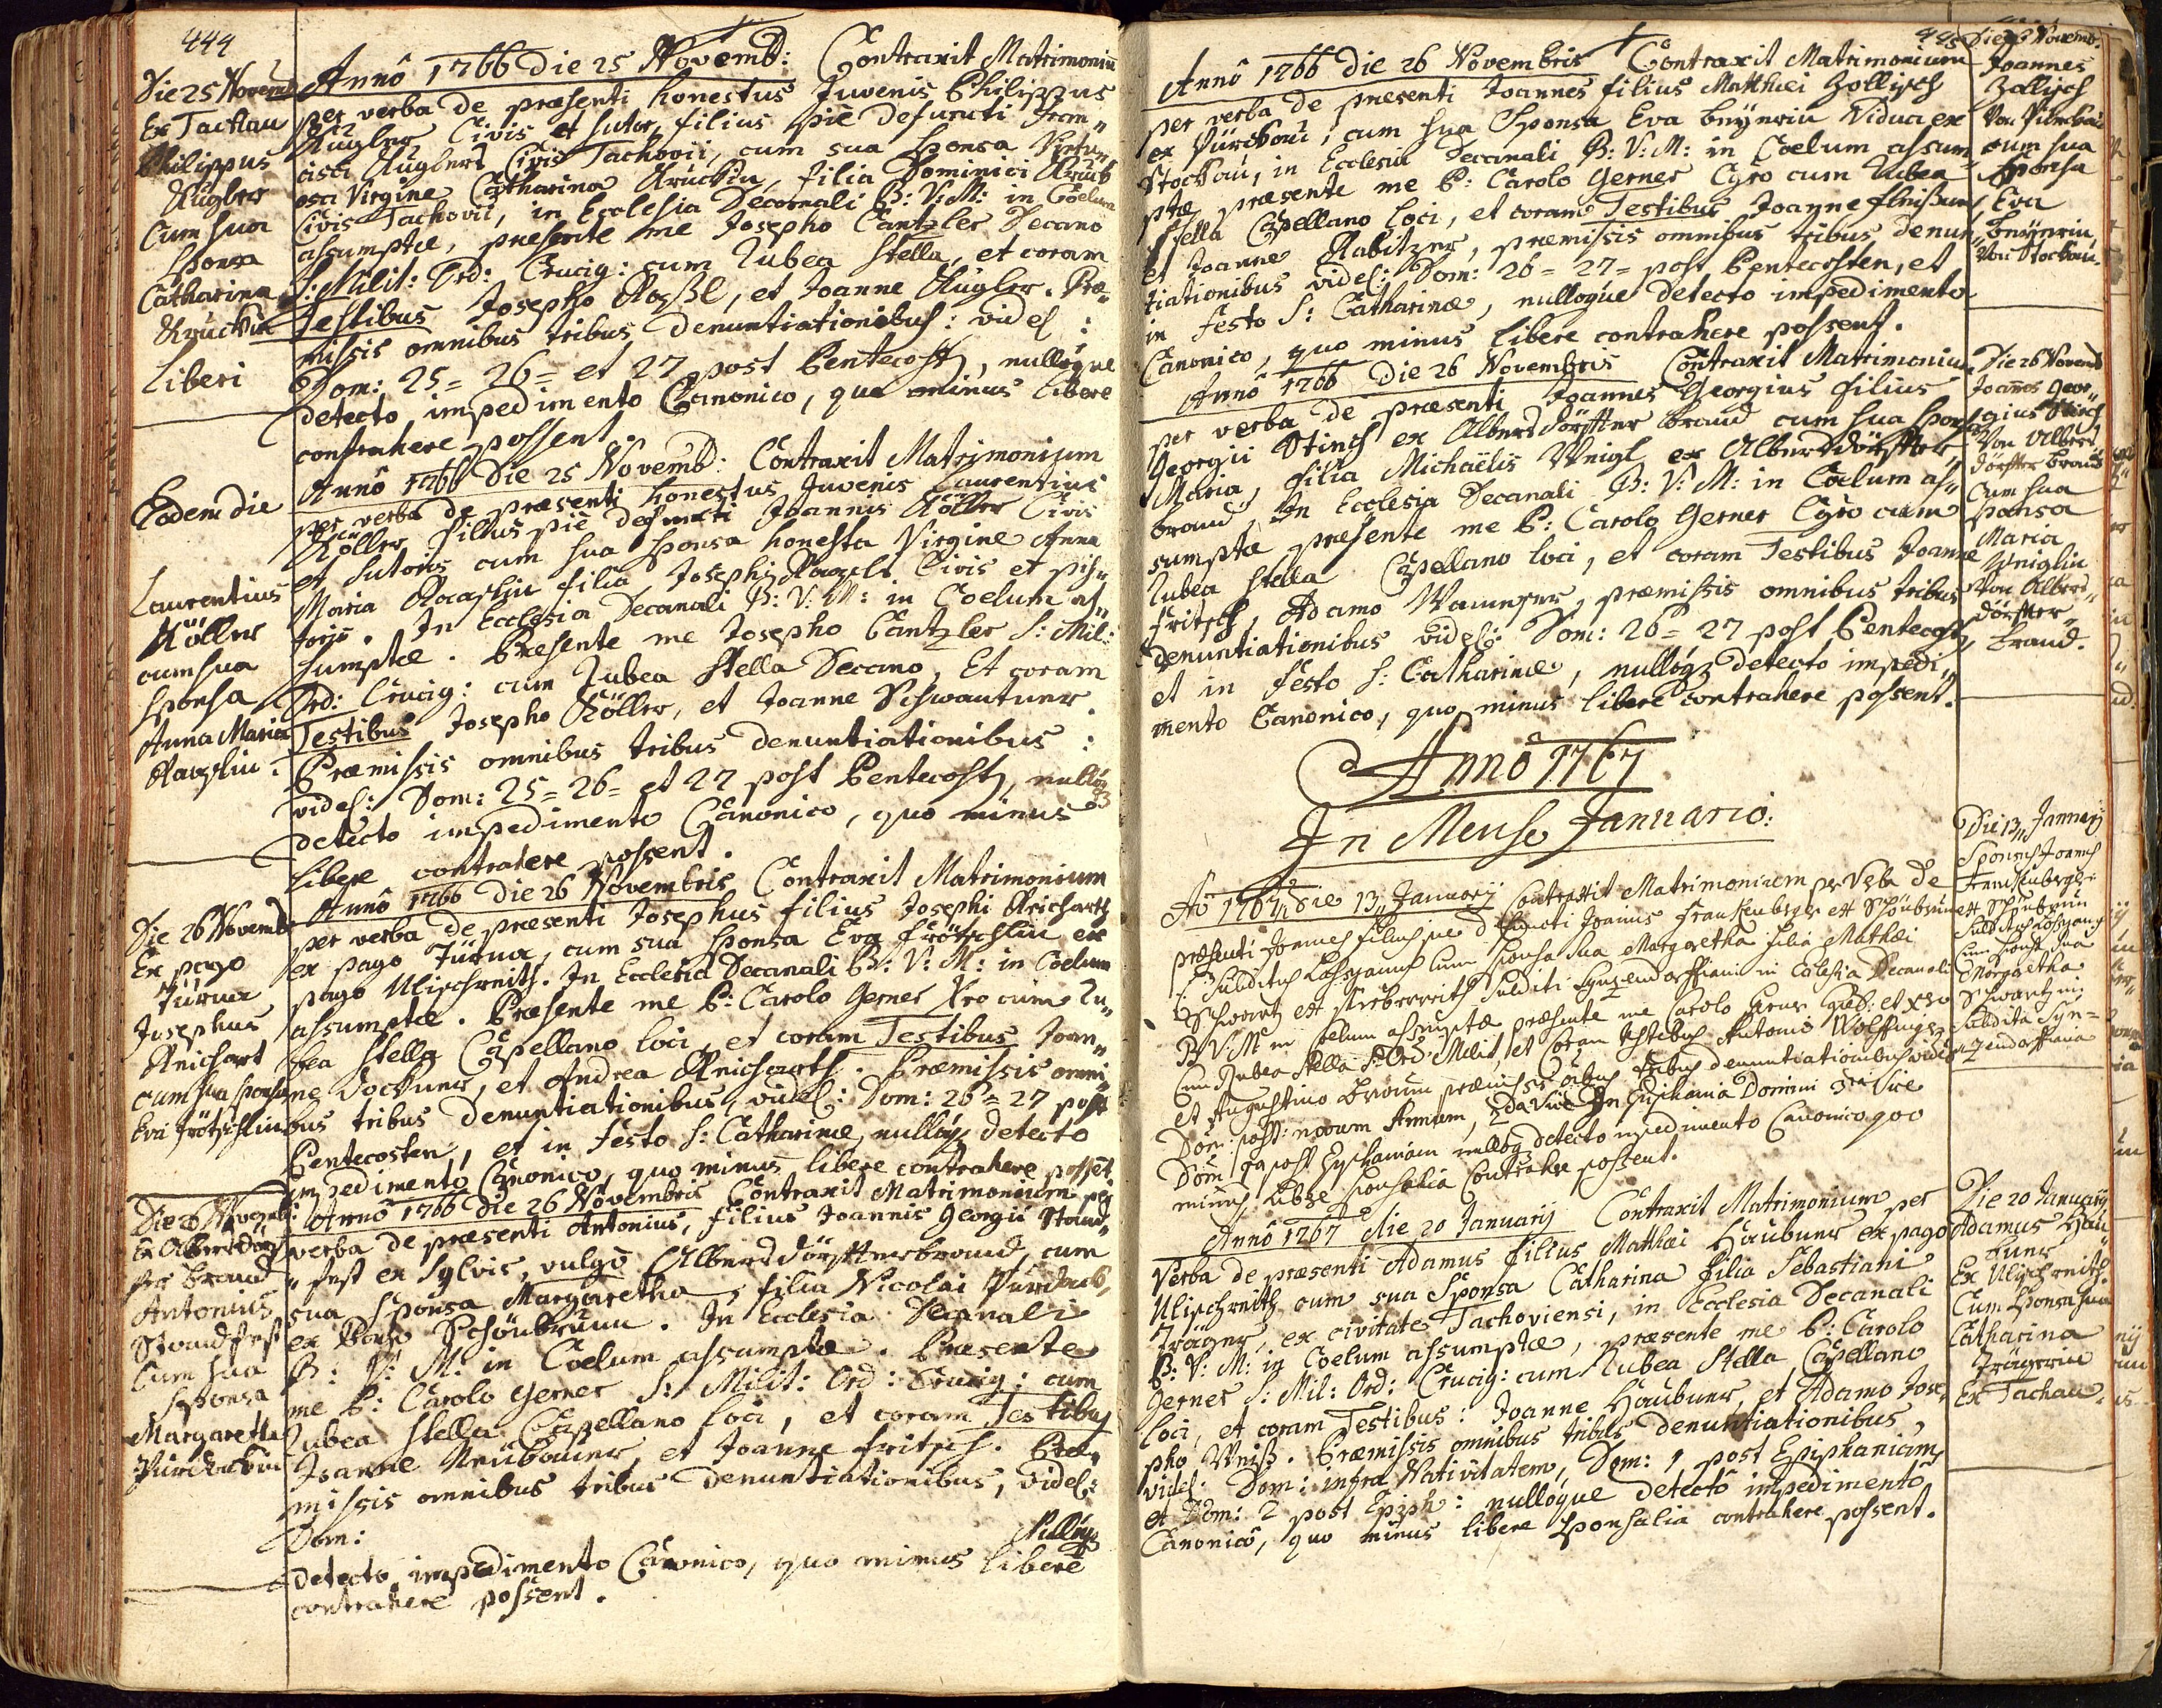 444
Die 25 Novemb
Ex Tachau
Philippus
Kugler
Cum sua
Sponsa
Catharina
Kruckin
Liberi
Anno 1766 Die 25 Novemb: Contraxit Matrimoniu
per verba de præsenti honestus Juvenis Philippus
Kugler, Civis et sutor, filius piè defuncti Fran„
cisci Kuglers Civis Tachovii, cum sua sponsa Virtu„
osa Virgine Catharina Kruckin, filia Dominici Kruck
Civis Tachovii, in Ecclesia Decanali B: V: M: in Coelum
assumptæ, præsente me Josepho Cantzler Decano
S: Milit: Ord: Crucig: cum Rubea stella, et coram
Testibus Josepho , et Joanne Kugler. Præ„
missis omnibus tribus denuntiationibus: videl:
Dom: 25= 26= et 27 post Pentecost, nulloque
detecto impedimento Canonico, quo minus libere
contrahere possent.
Eodem die
Laurentius
Köller
cum sua
sponsa
Anna Maria
Anno 1766 Die 25 Novemb: Contraxit Matrimonium
per verba de præsenti honestus Juvenis Laurentius
Köller filius piè defuncti Joannis Köller Civis
et sutoris cum sua sponsa honesta Virgine Anna
Maria filia Josephi Civis et pis„
toris. In Ecclesia Decanali B: V: M: in Coelum as„
sumptæ. Præsente me Josepho Cantzler S: Mil:
Ord: Crucig: cum Rubea Stella Decano, Et coram
Testibus Josepho Köller, et Joanne Schwantner.
Præmissis omnibus tribus denuntiationibus:
videl: Dom: 25= 26= et 27 post Pentecost, nulloq
detecto impedimento Canonico, quo minus
libere contrahere possent.
Die 26 Novemb
Ex pago
Türna
Josephus
Reichart
cum sua sponsa
Eva Frötschlin
Anno 1766 Die 26 Novembris Contraxit Matrimonium
per verba de præsenti Josephus filius Josephi Reicharts
ex pago Türna, cum sua sponsa Eva Frötschlin ex
pago Ulischreith. In Ecclesia Decanali B: V: M: in Coelum
assumptæ. Præsente me P: Carolo Gerner Xro cum Ru„
bea stella Capellano loci, et coram Testibus Joan„
ne Dockner, et Andrea Reicharth. Præmissis omni„
bus tribus denuntiationibus, videl: Dom: 26= 27 post
Pentecosten, et in Festo S: Catharinæ, nulloq detecto
impedimento Canonico, quo minus libere contrahere posset.
Die 26 Novemb:
Ex Albersdörf
fer Brand
Antonius
Standfest
Cum sua
Sponsa
Margaretha
Anno 1766 Die 26 Novembris Contraxit Matrimonium per
verba de præsenti Antonius, filius Joannis Georgii Stand„
„fest ex Sylvis, vulgò Albersdörffterbrand, cum
sua sponsa Margaretha, filia Nicolai
ex Pago Schönbrunn. In Ecclesia Decanali
B: V: M: in Coelum assumptæ. Præsente
me P: Carolo Gerner S: Milit: Ord: Crucig: cum
Rubea stella Capellano loci, et coram Testibus
Joanne Neubauer, et Joanne Fritsch. Præ„
missis omnibus tribus denuntiationibus, videl:
Dom: Nulloq
detecto impedimento Canonico, quo minus liberè
contrahere possent.
445
Anno 1766 Die 26 Novembris Contraxit Matrimonium
per verba de præsenti Joannes filius Matthæi Zollisch
ex , cum sua Sponsa Eva Vidua ex
Stockau, in Ecclesia Decanali B: V: M: in Coelum assum„
ptæ præsente me P: Carolo Gerner Cyro cum Rubea
stella Capellano loci, et coram Testibus Joanne
et Joanne Rabitzer, præmissis omnibus tribus denun„
tiationibus videl: Dom: 26= 27= post Pentecosten, et
in festo S: Catharinæ, nulloque detecto impedimento
Canonico, quo minus libere contrahere possent.
Die 26 Novemb:
Joannes
Zollisch
cum sua
Sponsa
Eva
Von Stockau.
Anno 1766 Die 26 Novembris Contraxit Matrimonium
per verba de præsenti Joannes Georgius filius
Georgii Stinch ex Albersdörffter brand cum sua sponsa
Maria, filia Michaëlis Weigl ex Albersdörffter
brand, In Ecclesia Decanali B: V: M: in Coelum as„
sumptæ præsente me P: Carolo Gerner Cyro cum
Rubea stella Capellano loci, et coram Testibus Joanne
Fritsch, Adamo , præmissis omnibus tribus
denuntiationibus videl: Dom: 26= 27 post Pentecost,
et in Festo S: Catharinæ, nulloq detecto impedi„
mento Canonico, quo minus libere contrahere possent.
Die 26 Novemb
Joannes Geor„
gius Stinch
Von Albers
dörffter brand
Cum sua
sponsa
Maria
Weiglin
Von Albers„
dörffter„
brand.
Anno 1767
In Mense Januario:
Ao 1767 Die 13 Januarij Contraxit Matrimonium per Verba de
præsenti Joannes filius pie defuncti Joannis Frankenberger ex Schönbrun
Subditus cum sponsa sua Margaretha filia Mathæi
Schwartz ex subditi in Eclesia Decanali
B V M in Coelum assumptæ præsente me Carolo Gerner
cum Rubea Stella S: Ord: Milit, et Coram Testibus Antonio
et Augustino præmissis omnibus tribus denuntiationibus videl
Dom: post novum Annum, 2da Vice In Epiphania Domini 3tia Vice
Dom 1 post Epiphaniam nulloq detecto impedimento Canonico quo
minus libere sponsalia Contrahere possent.
Die 13 Januarij
Sponsus Joannes
Frankenberger
ex Schönbrun
Cum sponsa sua
Margaretha
Schwartzin
Subdita
Anno 1767 Die 20 Januarij Contraxit Matrimonium per
Verba de præsenti Adamus filius Matthæi Haubner ex pago
Ulischreith cum sua Sponsa Catharina filia Sebastiani
Träger, ex civitate Tachoviensi, in Ecclesia Decanali
B: V: M: in Coelum assumptæ, præsente me P: Carolo
Gerner S: Mil: Ord: Crucig: cum Rubea Stella Capellano
loci, et coram Testibus: Joanne Haubner, et Adamo Jose„
pho Weiß. Præmissis omnibus tribus denuntiationibus,
videl: Dom: infra Nativitatem, Dom: 1 post Epiphaniam,
et Dom: 2 post Epiph: nulloque detectô impedimentô
Canonicô, quo minus libere sponsalia contrahere possent.
Die 20 Januarij
Adamus Hau„
bner
Ex Ulischreith.
Cum Sponsa sua
Catharina
Trägerin
Ex Tachau.